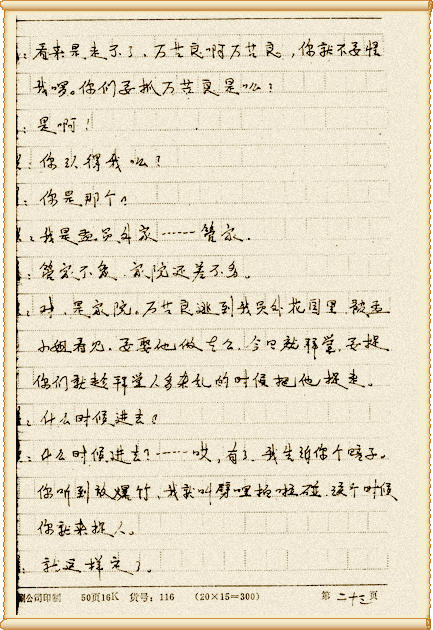 ：看来是走不了、万喜良啊万喜良，你就不要怪
我啰。你们要抓万喜良是么？
：是啊！
：你认得我么？
：你是那个？
：我是孟员外家……管家.
：管家不象、家院还差不多。
：对，是家院。万喜良逃到我员外花园里，被孟
小姐看见，要娶他做丈么，今日就拜堂，要捉
你们就趁拜堂人多杂乱的时候把他捉走。
：什么时候进去？
：什么时候进去？……哎，有了、我告诉你个暗子。
你听到放爆竹、我就叫劈哩拍啦碰，这个时候
你就来捉人。
：就这样定了。
公司印制 50页16K 货号：116 (20×15=300) 第二十三页